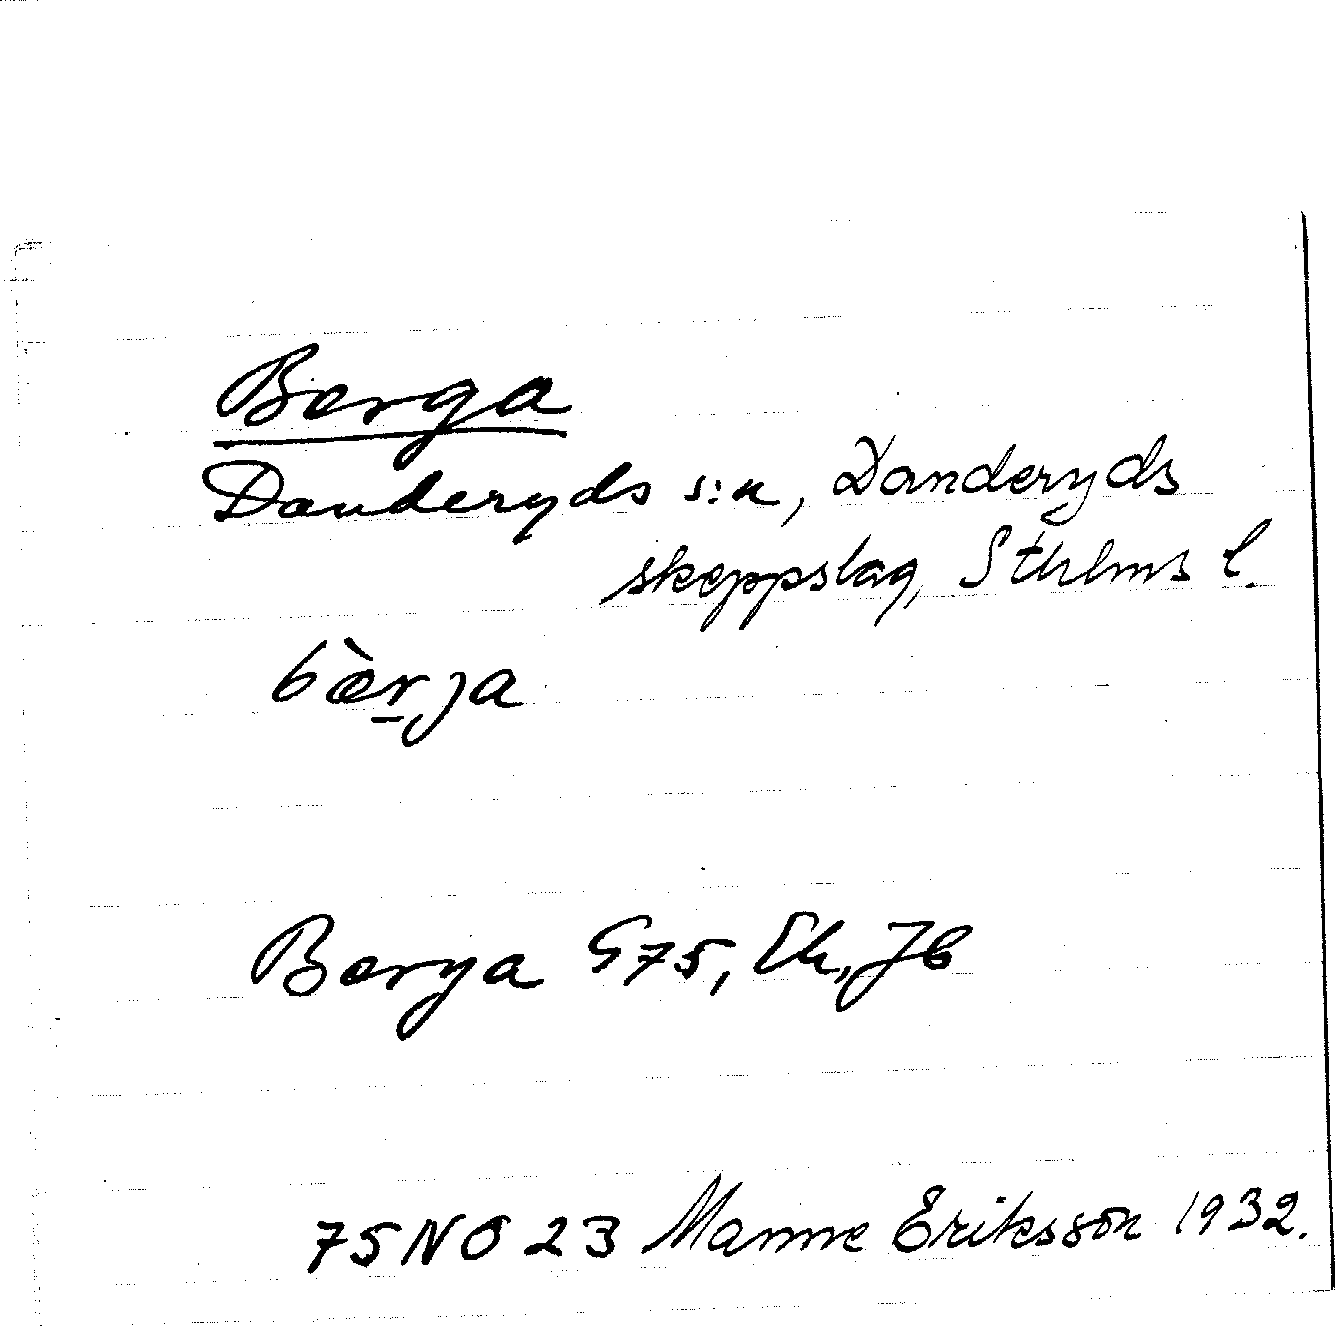 Berga
Danderyds s:n, Danderyds
skeppslag, Sthlms l.
bæ̀r̲ja
Berga G75, Ek, Jb
75 NO 23 Manne Eriksson 1932.